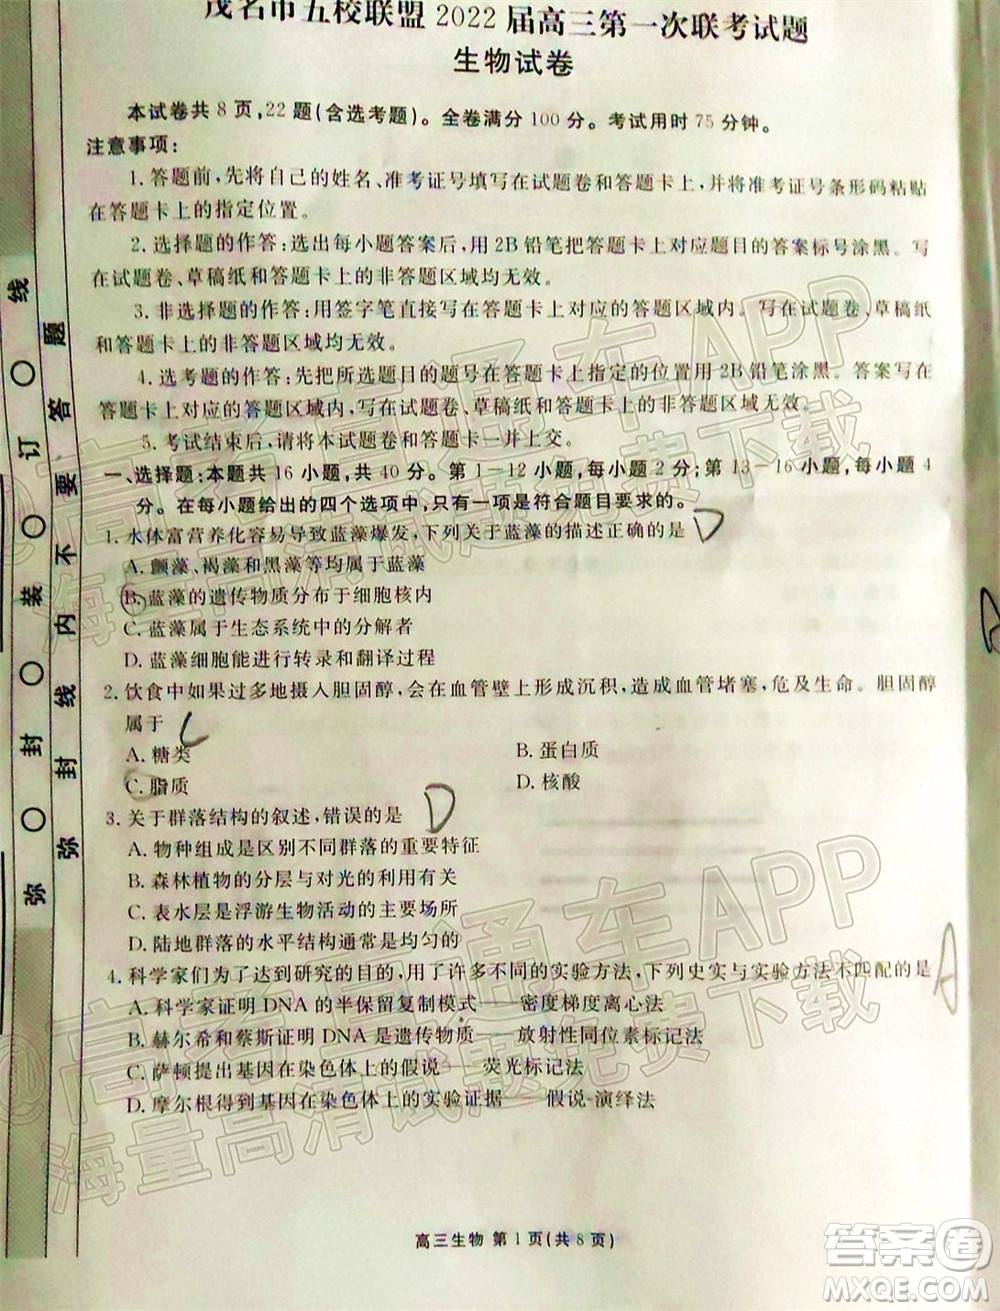 茂名市五校联盟 2022 届高三第一次联考试题
生物试卷
本试卷共 8 页,22 题(含选考题)。全卷满分 100 分。考试用时 75 分钟。
注意事项:
1. 答题前,先将自己的姓名、准考证号填写在试题卷和答题卡上,并将准考证号条形码粘贴
在答题卡上的指定位置。
2. 选择题的作答:选出每小题答案后,用 2B 铅笔把答题卡上对应题目的答案标号涂黑。写
在试题卷、草稿纸和答题卡上的非答题区域均无效。
3. 非选择题的作答:用签字笔直接写在答题卡上对应的答题区域内。写在试题卷、草稿纸
和答题卡上的非答题区域均无效。
4. 选考题的作答:先把所选题目的题号在答题卡上指定的位置用 2B 铅笔涂黑。答案写在
答题卡上对应的答题区域内,写在试题卷、草稿纸和答题卡上的非答题区域均无效。
5. 考试结束后,请将本试题卷和答题卡一并上交。
一、选择题:本题共 16 小题,共 40 分。第 1-12 小题,每小题 2 分;第 13-16 小题,每小题 4
分。在每小题给出的四个选项中,只有一项是符合题目要求的。
1. 水体富营养化容易导致蓝藻爆发,下列关于蓝藻的描述正确的是 D
A. 颤藻、褐藻和黑藻等均属于蓝藻
B. 蓝藻的遗传物质分布于细胞核内
C. 蓝藻属于生态系统中的分解者
D. 蓝藻细胞能进行转录和翻译过程
2. 饮食中如果过多地摄入胆固醇,会在血管壁上形成沉积,造成血管堵塞,危及生命。胆固醇
属于 C
A. 糖类 B. 蛋白质
C. 脂质 D. 核酸
3. 关于群落结构的叙述,错误的是 D
A. 物种组成是区别不同群落的重要特征
B. 森林植物的分层与对光的利用有关
C. 表水层是浮游生物活动的主要场所
D. 陆地群落的水平结构通常是均匀的
4. 科学家们为了达到研究的目的,用了许多不同的实验方法,下列史实与实验方法不匹配的是 A
A. 科学家证明 DNA 的半保留复制模式——密度梯度离心法
B. 赫尔希和蔡斯证明 DNA 是遗传物质——放射性同位素标记法
C. 萨顿提出基因在染色体上的假说——荧光标记法
D. 摩尔根得到基因在染色体上的实验证据——假说-演绎法
高三生物 第 1 页(共 8 页)
弥 〇 封 〇 装 〇 订 〇 线
弥 封 线 内 不 要 答 题
@高考直通车APP
海量高清试题免费下载
@高考直通车APP
海量高清试题免费下载
答案圈
MXQE.COM